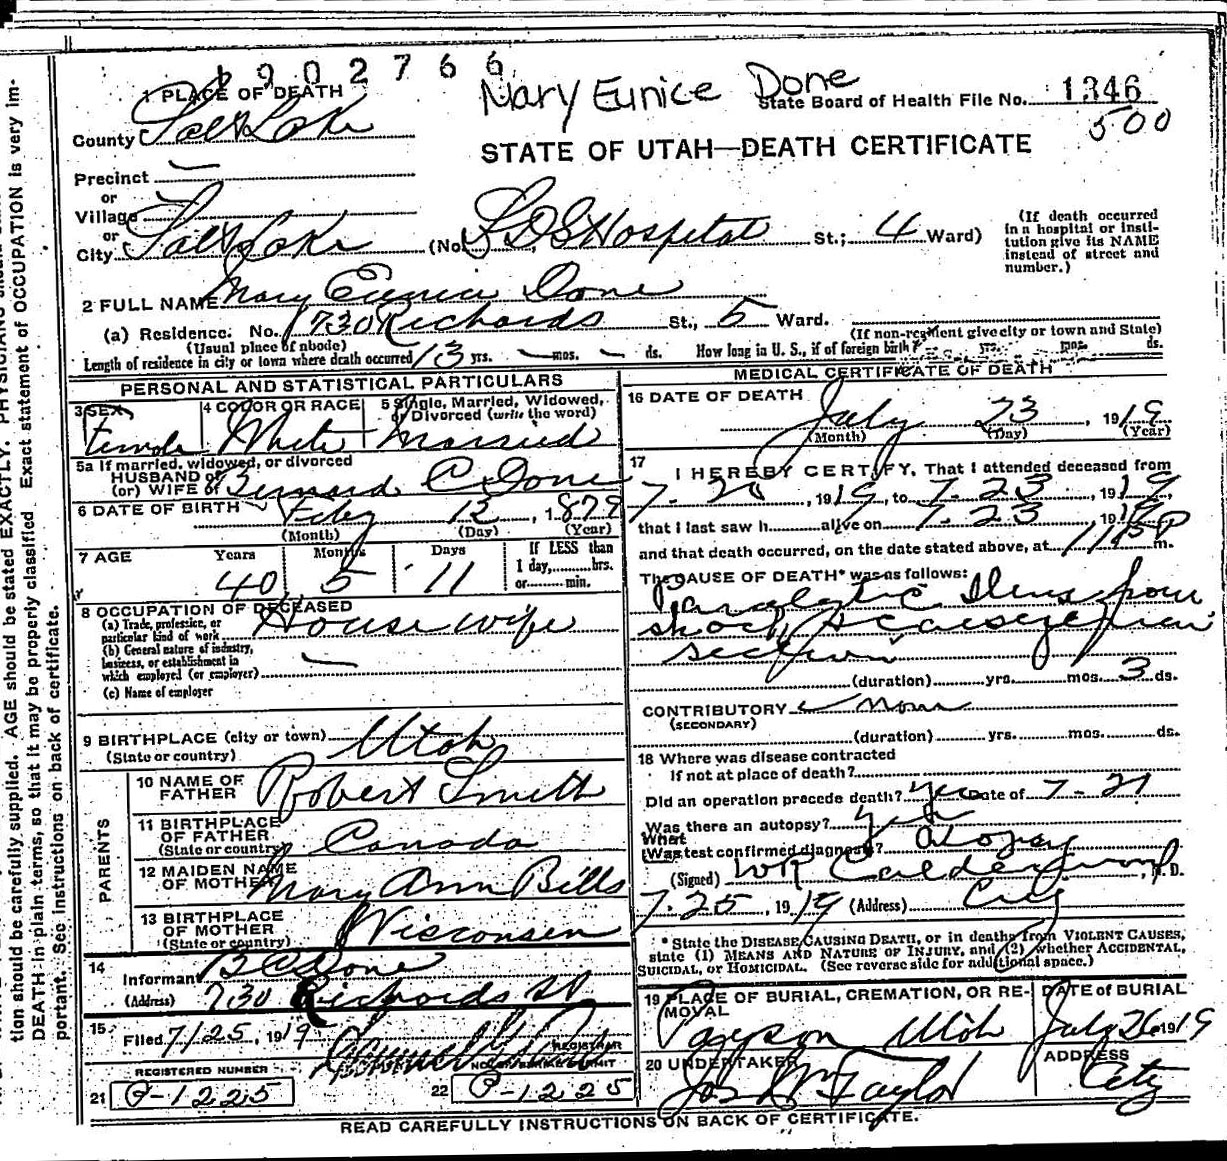 1902766
Mary Eunice Done
1 PLACE OF DEATH
State Board of Health File No. 1346
500
County Salt Lake
STATE OF UTAH—DEATH CERTIFICATE
Precinct —
or
Village
or
City Salt Lake (No. LDS Hospital St.; 4 Ward)
(If death occurred in a hospital or institution give its NAME instead of street and number.)
2 FULL NAME Mary Eunice Done
(a) Residence. No. 1730 Richards St., 5 Ward.
(Usual place of abode) (If non-resident give city or town and State)
Length of residence in city or town where death occurred 13 yrs. — mos. — ds. How long in U. S., if of foreign birth? yrs. mos. ds.
PERSONAL AND STATISTICAL PARTICULARS
3 SEX Female
4 COLOR OR RACE White
5 Single, Married, Widowed, or Divorced (write the word) Married
5a If married, widowed, or divorced
HUSBAND of
(or) WIFE of Bernard C Done
6 DATE OF BIRTH Feby 12, 1879
(Month) (Day) (Year)
7 AGE Years 40 Months 5 Days 11 If LESS than 1 day,........hrs. or........min.
8 OCCUPATION OF DECEASED
(a) Trade, profession, or particular kind of work House wife
(b) General nature of industry, business, or establishment in which employed (or employer) —
(c) Name of employer
9 BIRTHPLACE (city or town) Utah
(State or country)
PARENTS
10 NAME OF FATHER Robert Smith
11 BIRTHPLACE OF FATHER (State or country) Canada
12 MAIDEN NAME OF MOTHER Mary Ann Bills
13 BIRTHPLACE OF MOTHER (State or country) Wisconsin
14
Informant B C Done
(Address) 730 Richards St
15
Filed 7/25, 1919
REGISTRAR
REGISTERED NUMBER
21 P-1225
22 P-1225
MEDICAL CERTIFICATE OF DEATH
16 DATE OF DEATH
July 23, 1919
(Month) (Day) (Year)
17
I HEREBY CERTIFY, That I attended deceased from
7-20, 1919, to 7-23, 1919,
that I last saw h...... alive on 7-23 1919
and that death occurred, on the date stated above, at 1115P m.
The CAUSE OF DEATH* was as follows:
Paralytic Ileus from
shock, & caesarean
section
(duration) yrs. mos. 3 ds.
CONTRIBUTORY none
(SECONDARY)
(duration) yrs. mos. ds.
18 Where was disease contracted
If not at place of death?
Did an operation precede death? yes Date of 7-21
Was there an autopsy? yes
What test confirmed diagnosis?
(Signed) WR Calderwood, M. D.
7-25, 1919 (Address) City
* State the DISEASE CAUSING DEATH, or in deaths from VIOLENT CAUSES,
state (1) MEANS AND NATURE OF INJURY, and (2) whether ACCIDENTAL,
SUICIDAL, or HOMICIDAL. (See reverse side for additional space.)
19 PLACE OF BURIAL, CREMATION, OR REMOVAL Payson Utah
DATE of BURIAL July 26 1919
20 UNDERTAKER Jos Wm Taylor
ADDRESS City
READ CAREFULLY INSTRUCTIONS ON BACK OF CERTIFICATE.
tion should be carefully supplied. AGE should be stated EXACTLY. PHYSICIANS should
DEATH in plain terms, so that it may be properly classified. Exact statement of OCCUPATION is very im-
portant. See instructions on back of certificate.